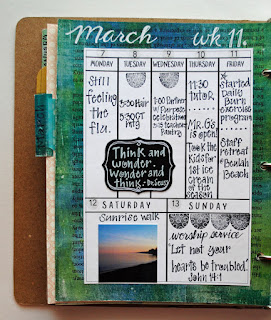 March wk 11.
7 8 9 10 11
MONDAY TUESDAY WEDNESDAY THURSDAY FRIDAY
Still
feeling
the
flu.
3:30 Hair
5:30 GT
mtg
9:00 Partner
w/ Purpose
celebration
@ teacher
Pantry
11:30
tutor
Mr. G's
is open!
Took the
kids for
1st ice
cream
of the
season
Started
Daily
Burn
exercise
program
Staff
retreat
@Beulah
Beach
Think and
wonder.
Wonder and
think. -Dr. Seuss
12 SATURDAY 13 SUNDAY
Sunrise walk
worship service
"Let not your
hearts be troubled."
John 14:1